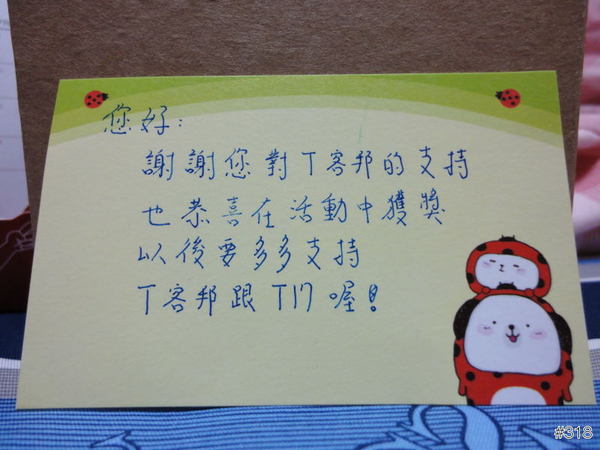 您好:
謝謝您對T客邦的支持
也恭喜在活動中獲獎
以後要多多支持
T客邦跟T17喔!
#318